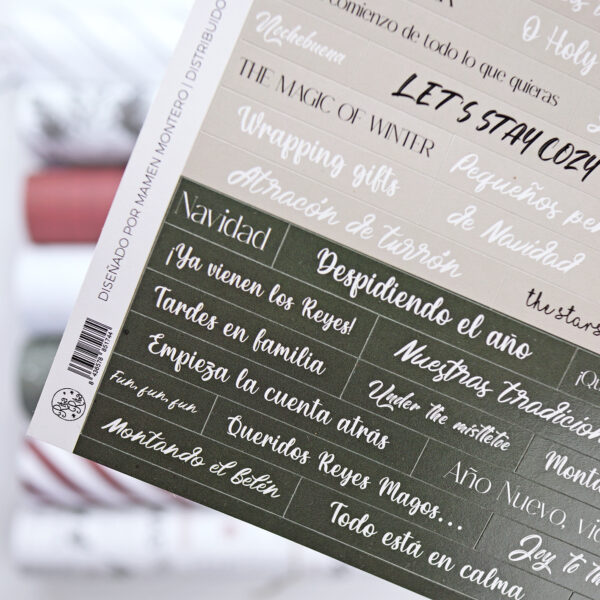 O Holy
comienzo de todo lo que quieras
Nochebuena
LET'S STAY COZY
THE MAGIC OF WINTER
Wrapping gifts
Pequeños
de Navidad
Atracón de turrón
the stars
Navidad
Despidiendo el año
¡Ya vienen los Reyes!
Nuestras tradicion
Tardes en familia
Under the mistletoe
Empieza la cuenta atrás
Monta
Fun, fun, fun
Queridos Reyes Magos...
Año Nuevo,
Montando el belén
Todo está en calma
Joy to
DISEÑADO POR MAMEN MONTERO | DISTRIBUIDO